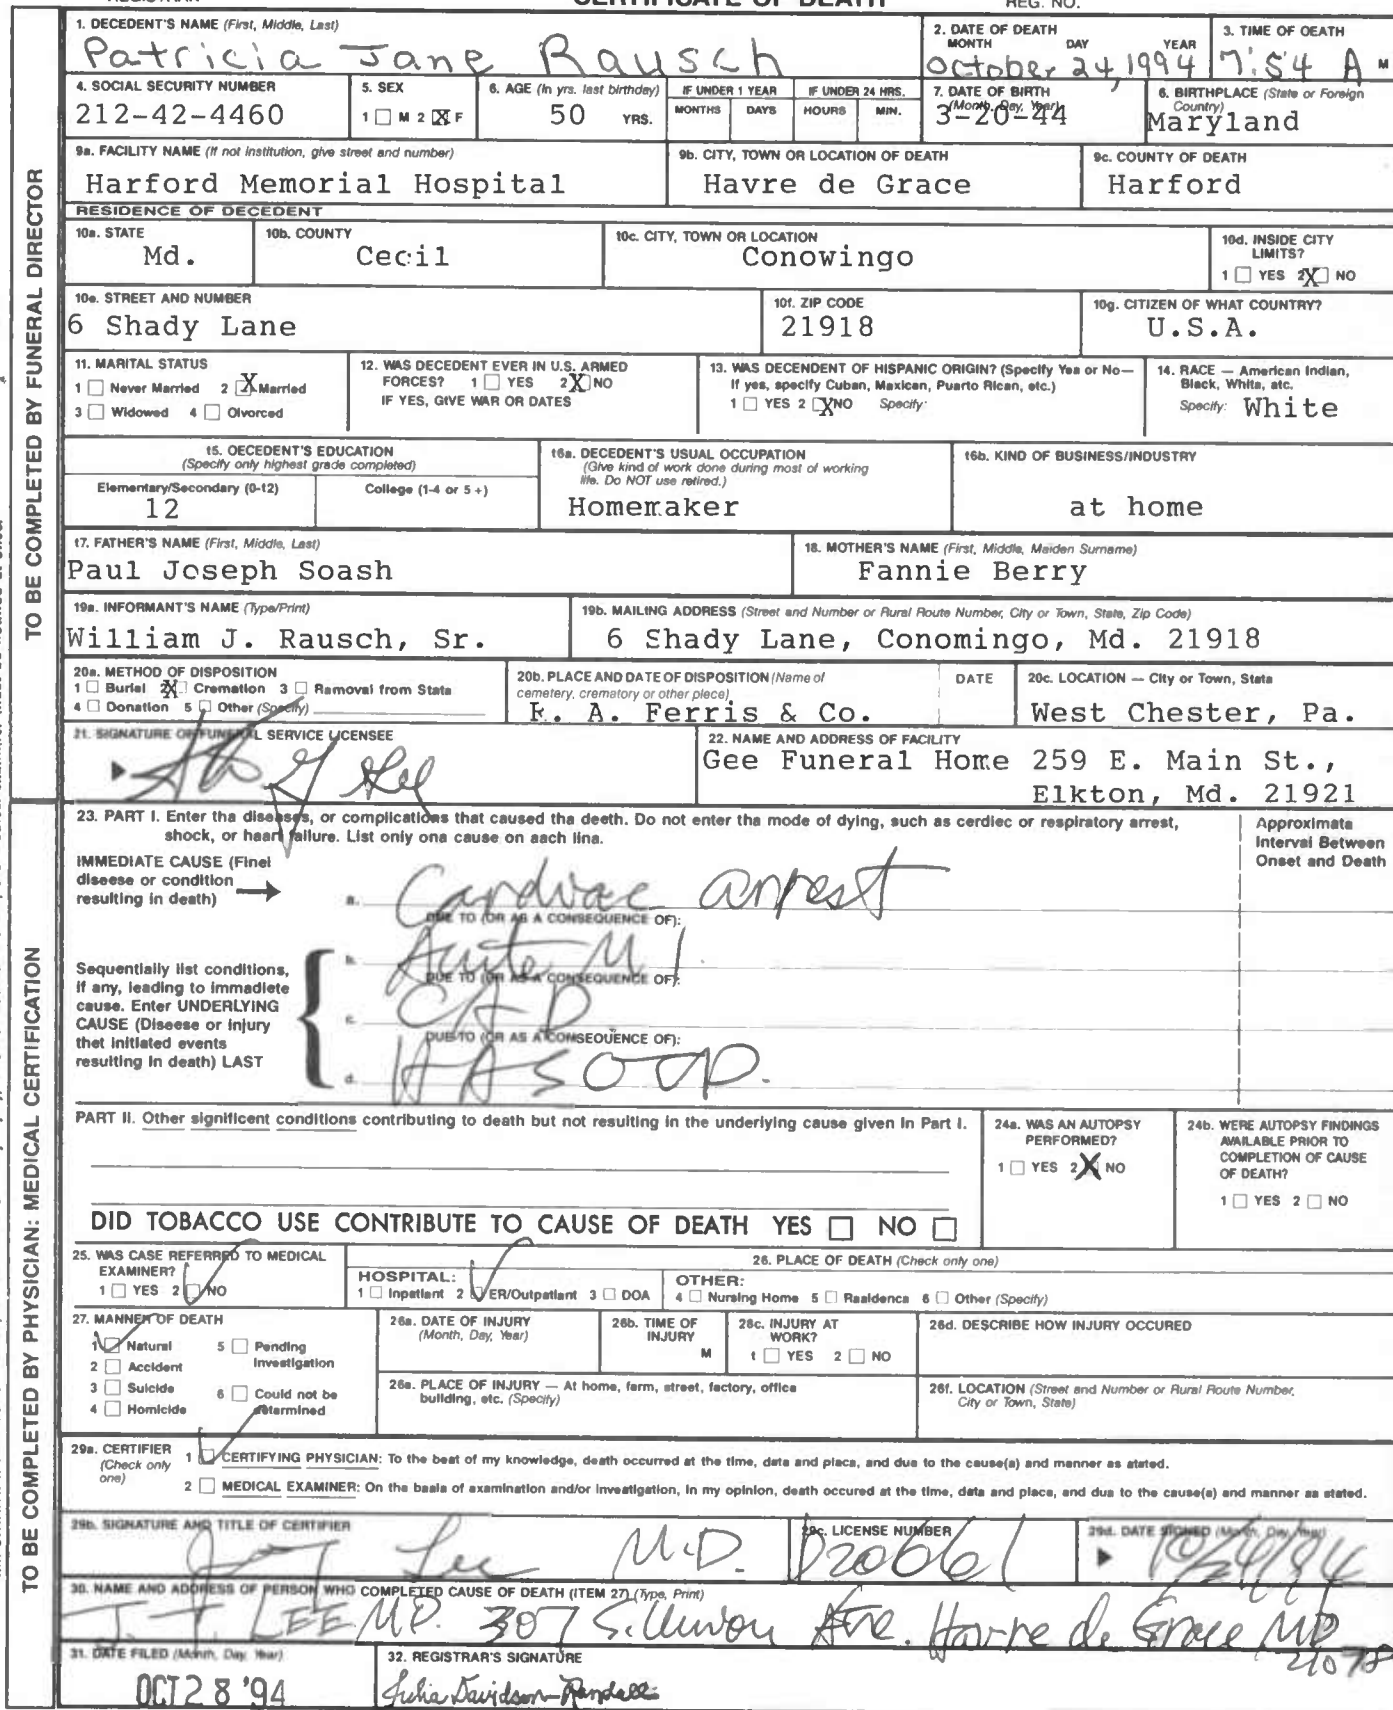 CERTIFICATE OF DEATH
REGISTRAR REG. NO.
TO BE COMPLETED BY FUNERAL DIRECTOR
1. DECEDENT'S NAME (First, Middle, Last)
Patricia Jane Rausch
2. DATE OF DEATH
MONTH DAY YEAR
October 24, 1994
3. TIME OF DEATH
7:54 A M
4. SOCIAL SECURITY NUMBER
212-42-4460
5. SEX
1 ☐ M 2 ☒ F
6. AGE (In yrs. last birthday)
50 YRS.
IF UNDER 1 YEAR
MONTHS DAYS
IF UNDER 24 HRS.
HOURS MIN.
7. DATE OF BIRTH
(Month, Day, Year)
3-20-44
8. BIRTHPLACE (State or Foreign
Country)
Maryland
9a. FACILITY NAME (If not institution, give street and number)
Harford Memorial Hospital
9b. CITY, TOWN OR LOCATION OF DEATH
Havre de Grace
9c. COUNTY OF DEATH
Harford
RESIDENCE OF DECEDENT
10a. STATE
Md.
10b. COUNTY
Cecil
10c. CITY, TOWN OR LOCATION
Conowingo
10d. INSIDE CITY
LIMITS?
1 ☐ YES 2 ☒ NO
10e. STREET AND NUMBER
6 Shady Lane
10f. ZIP CODE
21918
10g. CITIZEN OF WHAT COUNTRY?
U.S.A.
11. MARITAL STATUS
1 ☐ Never Married 2 ☒ Married
3 ☐ Widowed 4 ☐ Divorced
12. WAS DECEDENT EVER IN U.S. ARMED
FORCES? 1 ☐ YES 2 ☒ NO
IF YES, GIVE WAR OR DATES
13. WAS DECENDENT OF HISPANIC ORIGIN? (Specify Yes or No—
If yes, specify Cuban, Mexican, Puerto Rican, etc.)
1 ☐ YES 2 ☒ NO Specify:
14. RACE — American Indian,
Black, White, etc.
Specify: White
15. DECEDENT'S EDUCATION
(Specify only highest grade completed)
Elementary/Secondary (0-12) College (1-4 or 5 +)
12
16a. DECEDENT'S USUAL OCCUPATION
(Give kind of work done during most of working
life. Do NOT use retired.)
Homemaker
16b. KIND OF BUSINESS/INDUSTRY
at home
17. FATHER'S NAME (First, Middle, Last)
Paul Joseph Soash
18. MOTHER'S NAME (First, Middle, Maiden Surname)
Fannie Berry
19a. INFORMANT'S NAME (Type/Print)
William J. Rausch, Sr.
19b. MAILING ADDRESS (Street and Number or Rural Route Number, City or Town, State, Zip Code)
6 Shady Lane, Conomingo, Md. 21918
20a. METHOD OF DISPOSITION
1 ☐ Burial 2 ☒ Cremation 3 ☐ Removal from State
4 ☐ Donation 5 ☐ Other (Specify)
20b. PLACE AND DATE OF DISPOSITION (Name of
cemetery, crematory or other place)
R. A. Ferris & Co.
DATE
20c. LOCATION — City or Town, State
West Chester, Pa.
21. SIGNATURE OF FUNERAL SERVICE LICENSEE
22. NAME AND ADDRESS OF FACILITY
Gee Funeral Home 259 E. Main St.,
Elkton, Md. 21921
TO BE COMPLETED BY PHYSICIAN: MEDICAL CERTIFICATION
23. PART I. Enter the diseases, or complications that caused the death. Do not enter the mode of dying, such as cardiac or respiratory arrest,
shock, or heart failure. List only one cause on each line.
Approximate
Interval Between
Onset and Death
IMMEDIATE CAUSE (Final
disease or condition
resulting in death)
a. Cardiac arrest
DUE TO (OR AS A CONSEQUENCE OF):
Sequentially list conditions,
if any, leading to immediate
cause. Enter UNDERLYING
CAUSE (Disease or injury
that initiated events
resulting in death) LAST
b. Acute M.I.
DUE TO (OR AS A CONSEQUENCE OF):
c. CAD
DUE TO (OR AS A CONSEQUENCE OF):
d.
PART II. Other significant conditions contributing to death but not resulting in the underlying cause given in Part I.
24a. WAS AN AUTOPSY
PERFORMED?
1 ☐ YES 2 ☒ NO
24b. WERE AUTOPSY FINDINGS
AVAILABLE PRIOR TO
COMPLETION OF CAUSE
OF DEATH?
1 ☐ YES 2 ☐ NO
DID TOBACCO USE CONTRIBUTE TO CAUSE OF DEATH YES ☐ NO ☐
25. WAS CASE REFERRED TO MEDICAL
EXAMINER?
1 ☐ YES 2 ☑ NO
26. PLACE OF DEATH (Check only one)
HOSPITAL:
1 ☐ Inpatient 2 ☑ ER/Outpatient 3 ☐ DOA
OTHER:
4 ☐ Nursing Home 5 ☐ Residence 6 ☐ Other (Specify)
27. MANNER OF DEATH
1 ☑ Natural 5 ☐ Pending
Investigation
2 ☐ Accident
3 ☐ Suicide 6 ☐ Could not be
determined
4 ☐ Homicide
28a. DATE OF INJURY
(Month, Day, Year)
28b. TIME OF
INJURY
M
28c. INJURY AT
WORK?
1 ☐ YES 2 ☐ NO
28d. DESCRIBE HOW INJURY OCCURED
28e. PLACE OF INJURY — At home, farm, street, factory, office
building, etc. (Specify)
28f. LOCATION (Street and Number or Rural Route Number,
City or Town, State)
29a. CERTIFIER
(Check only
one)
1 ☑ CERTIFYING PHYSICIAN: To the best of my knowledge, death occurred at the time, date and place, and due to the cause(s) and manner as stated.
2 ☐ MEDICAL EXAMINER: On the basis of examination and/or investigation, in my opinion, death occured at the time, data and place, and due to the cause(s) and manner as stated.
29b. SIGNATURE AND TITLE OF CERTIFIER
Lee M.D.
29c. LICENSE NUMBER
D20661
29d. DATE SIGNED (Month, Day, Year)
10/24/94
30. NAME AND ADDRESS OF PERSON WHO COMPLETED CAUSE OF DEATH (ITEM 27) (Type, Print)
J. T. LEE MD. 307 S. Union Ave. Havre de Grace MD
21078
31. DATE FILED (Month, Day, Year)
OCT 28 '94
32. REGISTRAR'S SIGNATURE
Julia Davidson-Randall